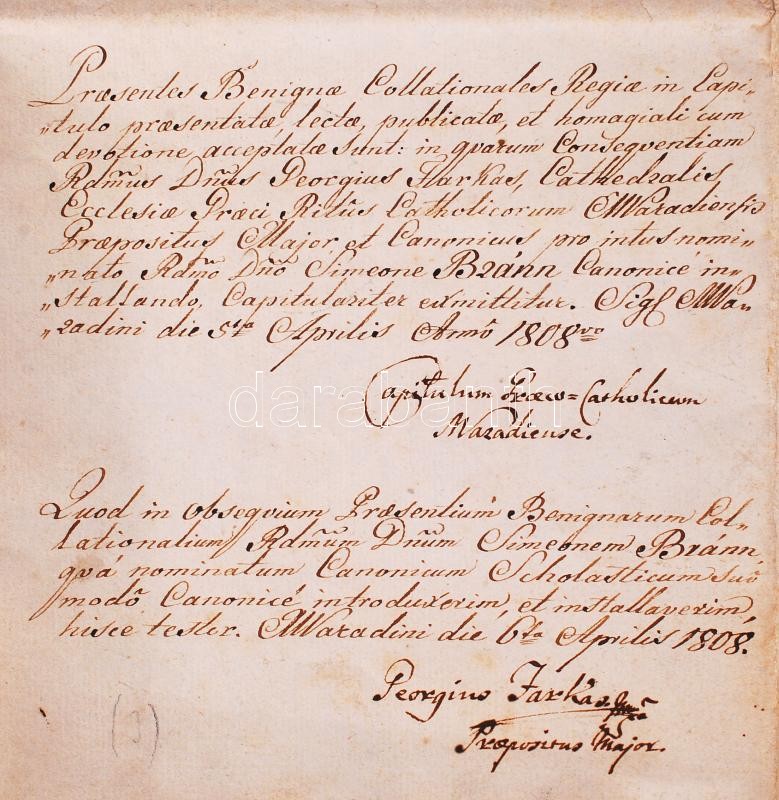 Præsentes Benignæ Collationales Regiæ in Capi-
-tulo præsentatæ, lectæ, publicatæ, et homagiali cum
devotione acceptatæ sunt: in qvarum Conseqventiam
Rdm̃us Dñus Georgius Farkas, Cathedralis
Ecclesiæ Græci Ritûs Catholicorum MWaradiensis
Præpositus Major, et Canonicus pro intus nomi-
-nato Rdm̃o Dño Simeone Bránn Canonicé in-
-stallando, Capitulariter exmittitur. Sigl MWa-
-radini die 5ta Aprilis Annô 1808vo
Capitulum Græco=Catholicum
Waradiense.
Quod in obseqvium Præsentium Benignarum Col-
lationalium Rdm̃um Dñum Simeonem Bránn,
qvá nominatum Canonicum Scholasticum suô
modô Canonicé introduxerim, et installaverim,
hisce testor. MWaradini die 6ta Aprilis 1808.
Georgius Farkas
Præpositus Major.
darabanth